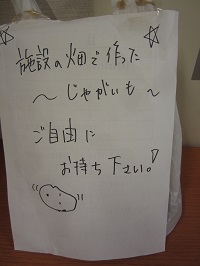 施設の畑で作った
～じゃがいも～
ご自由に
お持ち下さい!